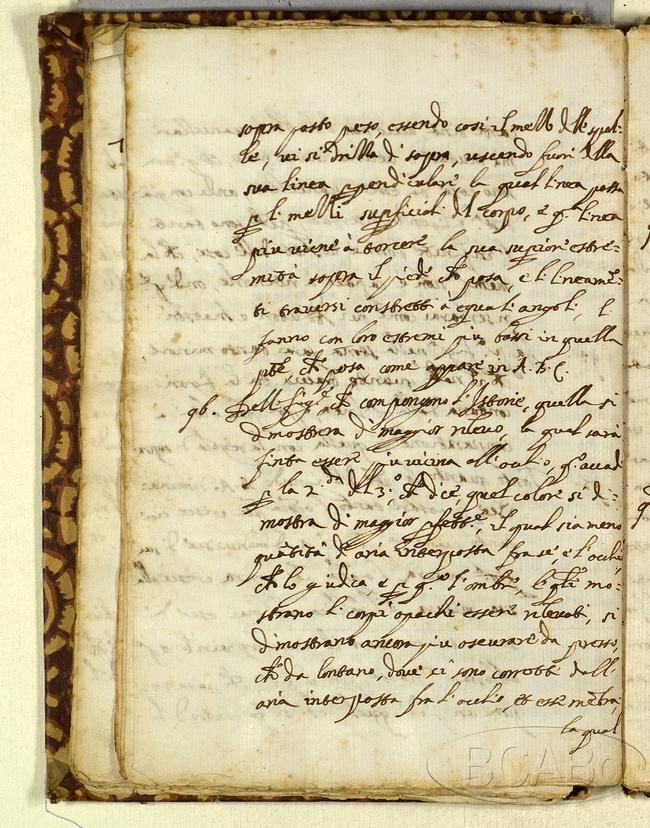 sopra posto peso, essendo così il mellō dlle spal-
le, lui si drilla di sopra, uscendo fuori dlla
sua linea ppendiculare, la qual linea passa
p li melli supficiali dl corpo, e qª linea
più viene à torcere la sua supiore estre-
mità sopra il piede chē posa, e li lineamē-
ti traversi constretti à eguali angoli, li
fanno con loro estremi più bassi in quella
pte, chē posa, come appare in A. B. C.
96. Dell figᵉ, chē compongono l'Istorie, quella si
dimostrerà di maggior rilievo, la qual sarà
finta essere più vicina all'ochio, qº accad
p la 2ᵈᵃ dl 3º, chē dice, quel colore si di-
mostra di maggior pfettᵉ, il qual sia meno
quātità d'aria interposta fra sè, e l'ochio,
chē lo giudica, e p qº l'ombrē, lē qli mo-
strano li corpi opachi essere rilevati, si
dimostrano ancora più oscurare da presso,
chē da lontano, dove ci sono corrotta dall'
aria interposta fra l'ochio, et esse mēbra,
la qual
BCABo